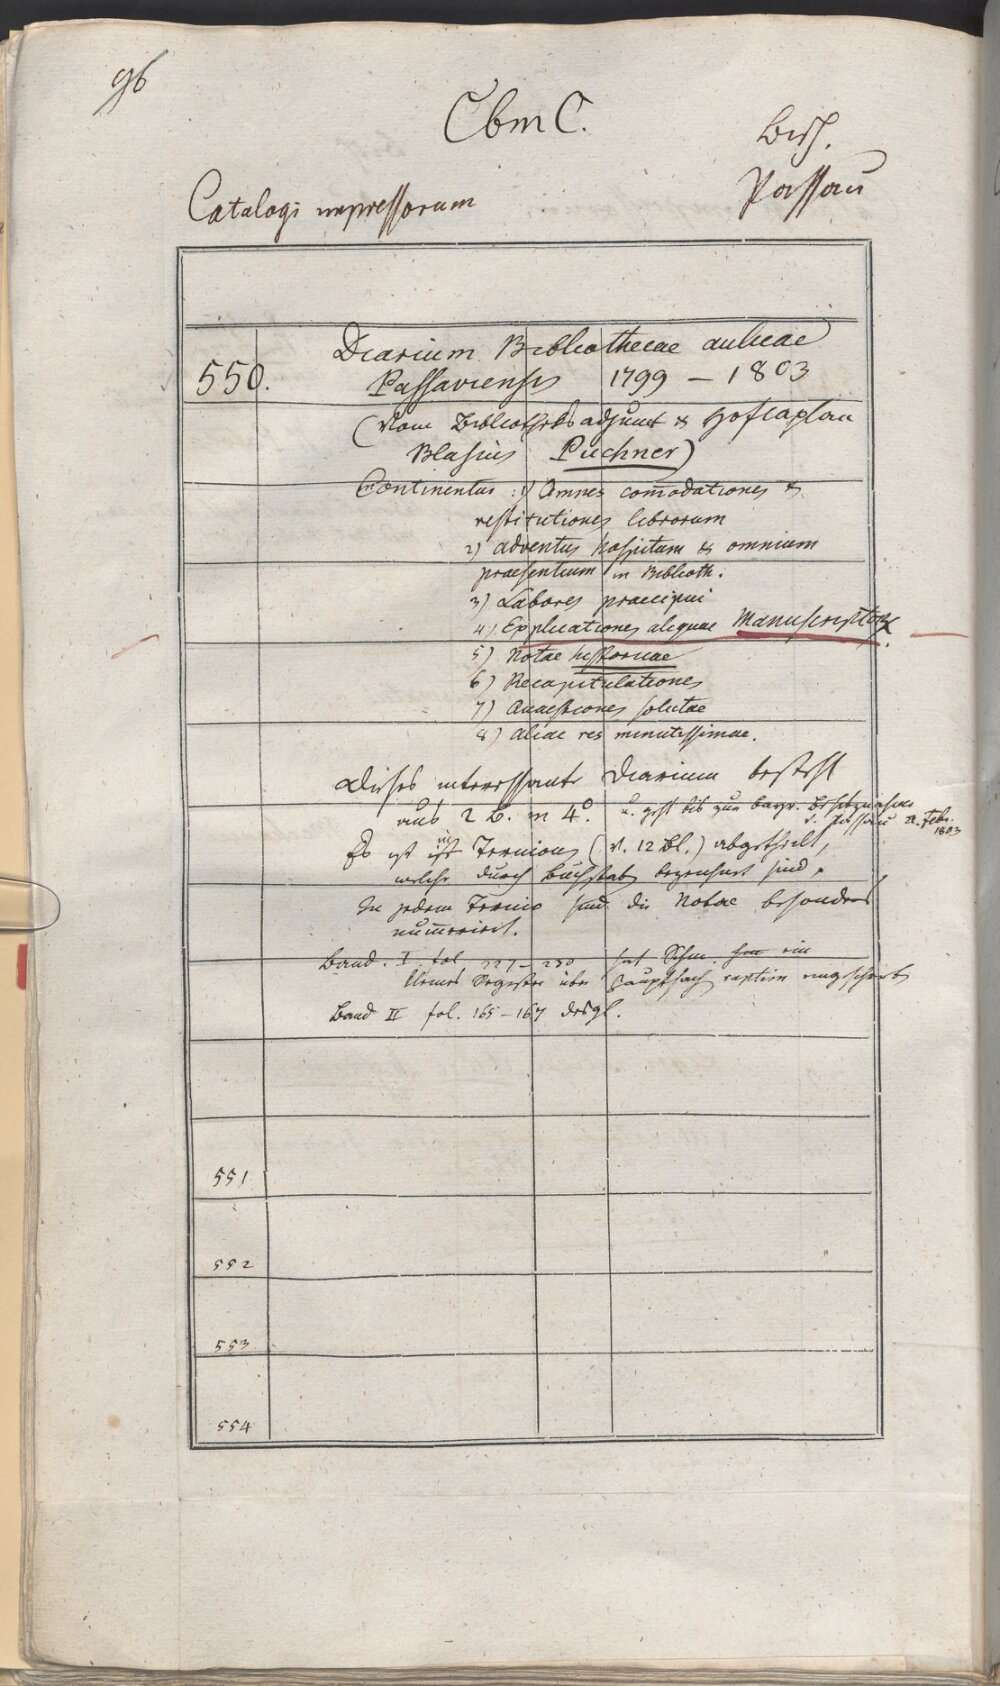 96
Cbm C.
Bish.
Passau
Catalogi impressorum
550.
Diarium Bibliothecae aulicae
Passaviensis 1799 – 1803
(Vom Bibliotheksadjunct & Hofcaplan
Blasius Puchner)
Continentur: 1) Omnes com̄odationes &
restitutiones librorum
2) adventus hospitum & omnium
praesentium in Biblioth.
3) Labores praecipui
4) Explicationes aliquae Manuscriptor.
5) Notae historicae
6) Recapitulationes
7) Quaestiones solutae
8) aliae res minutissimae.
Dieses interessante Diarium besteht
aus 2 B. in 4° u. geht bis zur bayr. Besitznahme
v. Passau 1803
Es ist in Ternionen (v. 12 Bl.) abgetheilt,
welche durch Buchstaben bezeichnet sind.
In jedem Ternio sind die Notae besonders
num̄erirt.
Band. I. fol 227–230 hat Schm. ein
kleines Register über Hauptsach raptim eingeschrieb
Band II fol. 165–167 desgl.
551
552
553
554